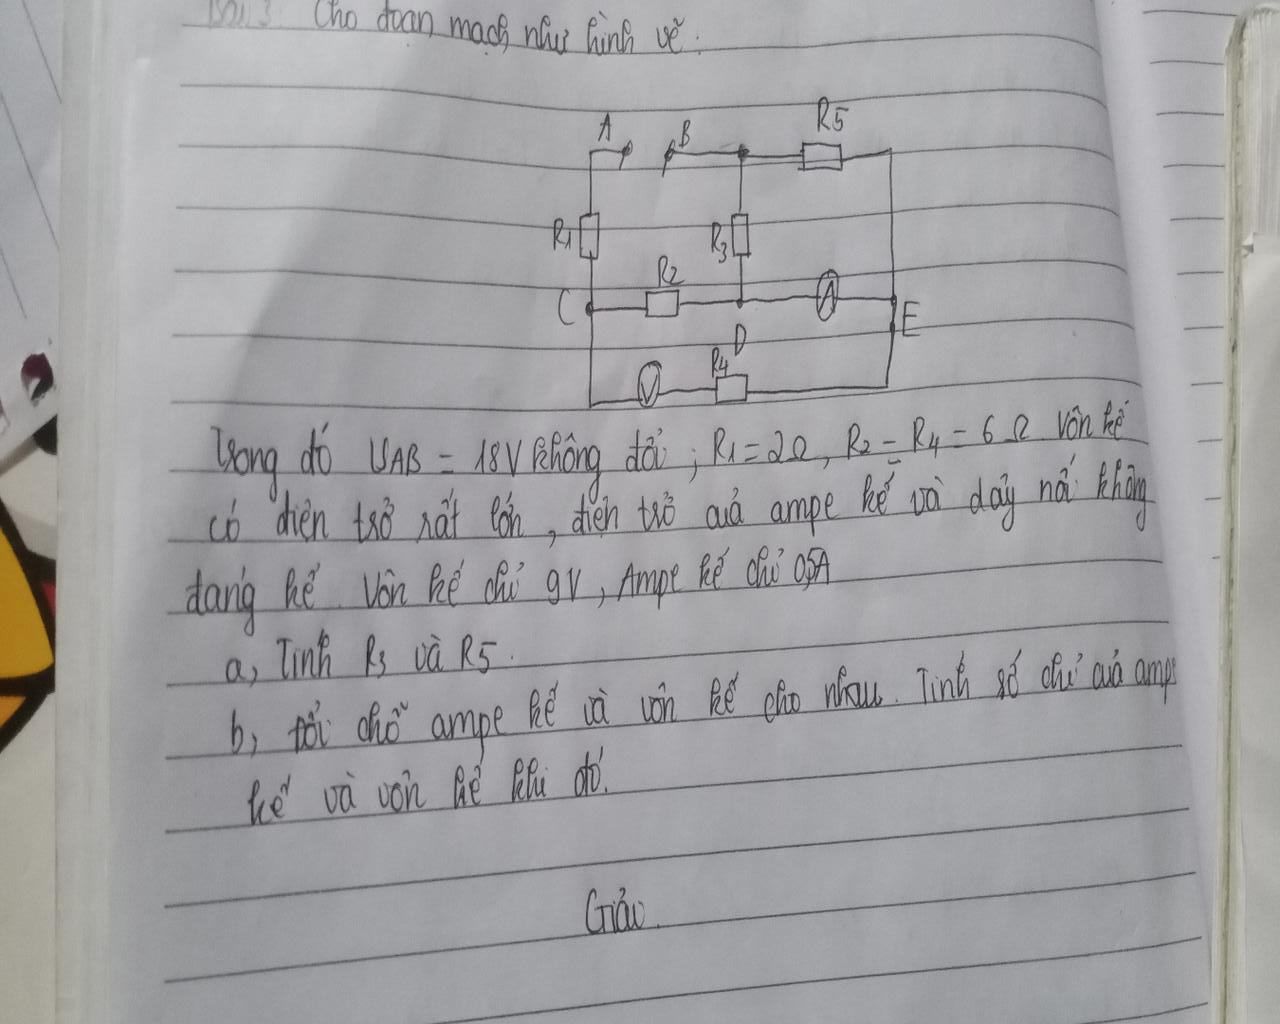 Bài 3. Cho đoạn mạch như hình vẽ.
A B R5
R1 R3
R2
C D E
R4
A
V
Trong đó UAB = 18V không đổi ; R1 = 2Ω, R2 = R4 = 6Ω vôn kế
có điện trở rất lớn, điện trở quả ampe kế và dây nối không
đáng kể. Vôn kế chỉ 9V, Ampe kế chỉ 0,5A
a, Tính R3 và R5.
b, đổi chỗ ampe kế và vôn kế cho nhau. Tính số chỉ quả ampe
kế và vôn kế khi đó.
Giải